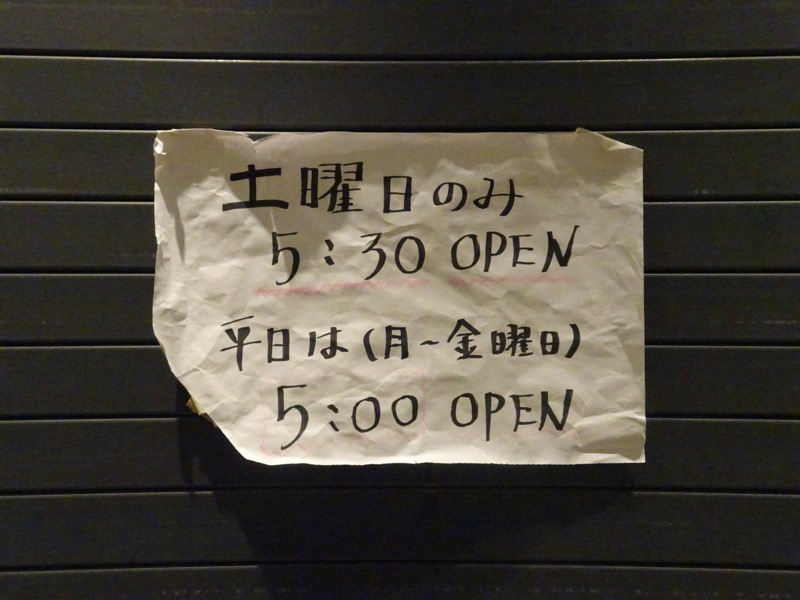 土曜日のみ
5:30 OPEN
平日は(月~金曜日)
5:00 OPEN